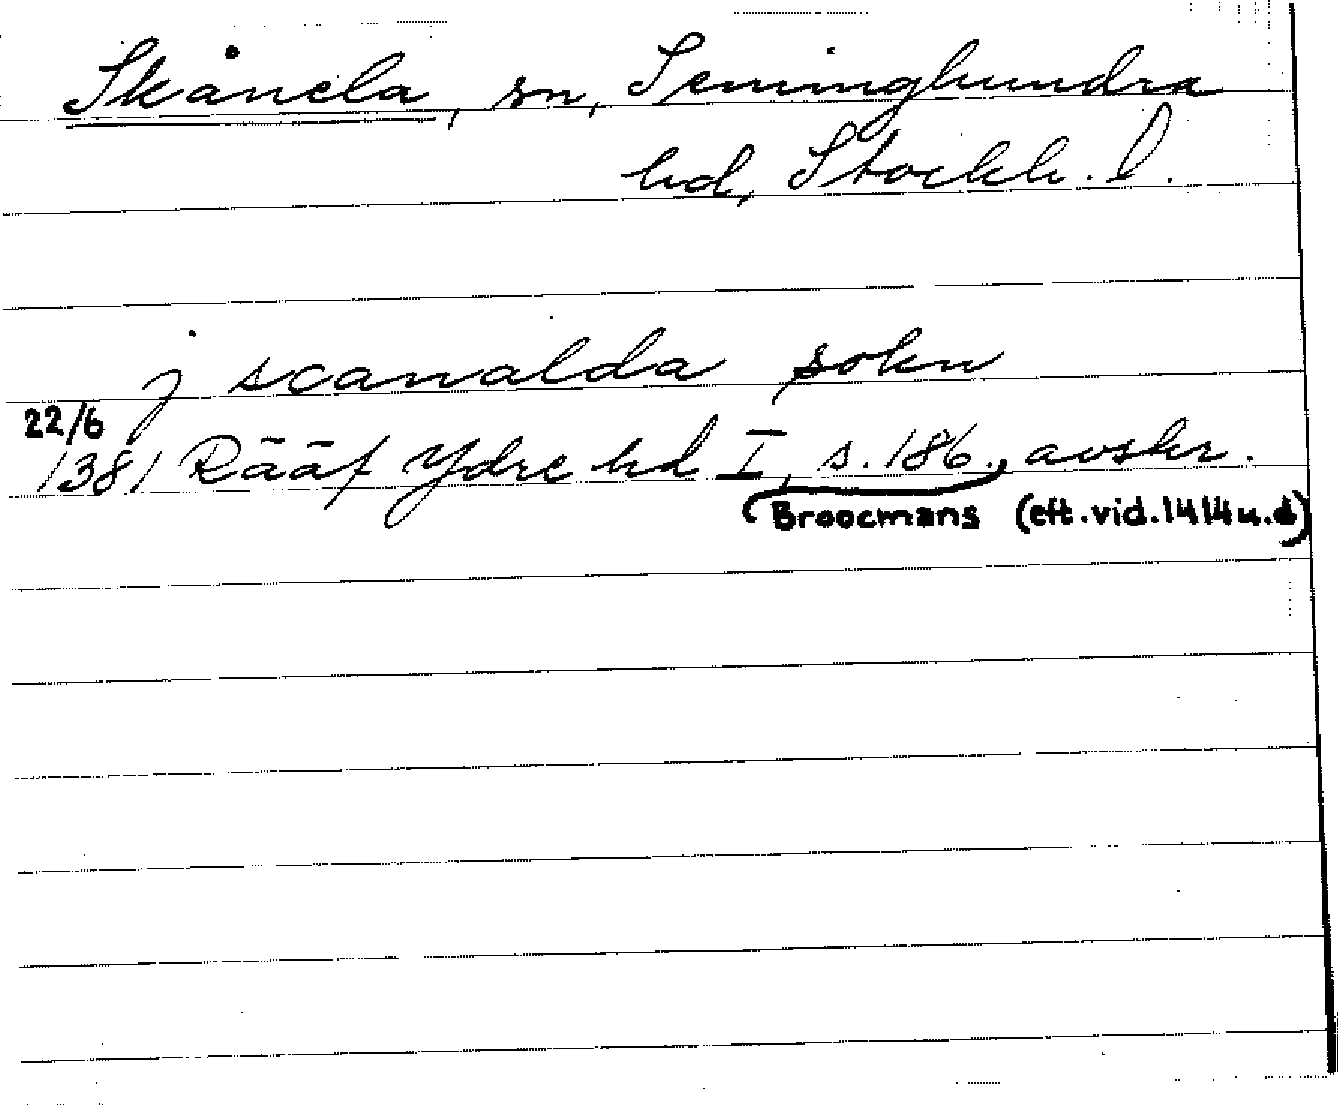 Skånela, sn, Seminghundra
hd, Stockh. l.
j scanalda sokn
22/6
1381 Rääf Ydre hd I, s. 186, avskr.
Broocmans (eft. vid. 1414 u.d)